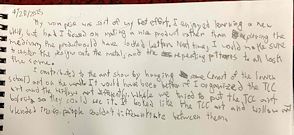 4/28/2025
My worm pete was sort of my best effort, I enjoyed learning a new
skill, but had I focused on making a nice product rather than experiencing the
medium, the product would have looked better. Next time, I would make sure
to center this design onto the metal, and the repeating patterns to all look
the same.
I contributed to the art show by hanging most of the lower
school art on the walls. It would have been better if I organized the TCC
art and the Willow art differently. While we tried to put the TCC art
balcony so they could see it. It looked like the TCC art and Willow art
blended in so people couldn't differentiate between them.